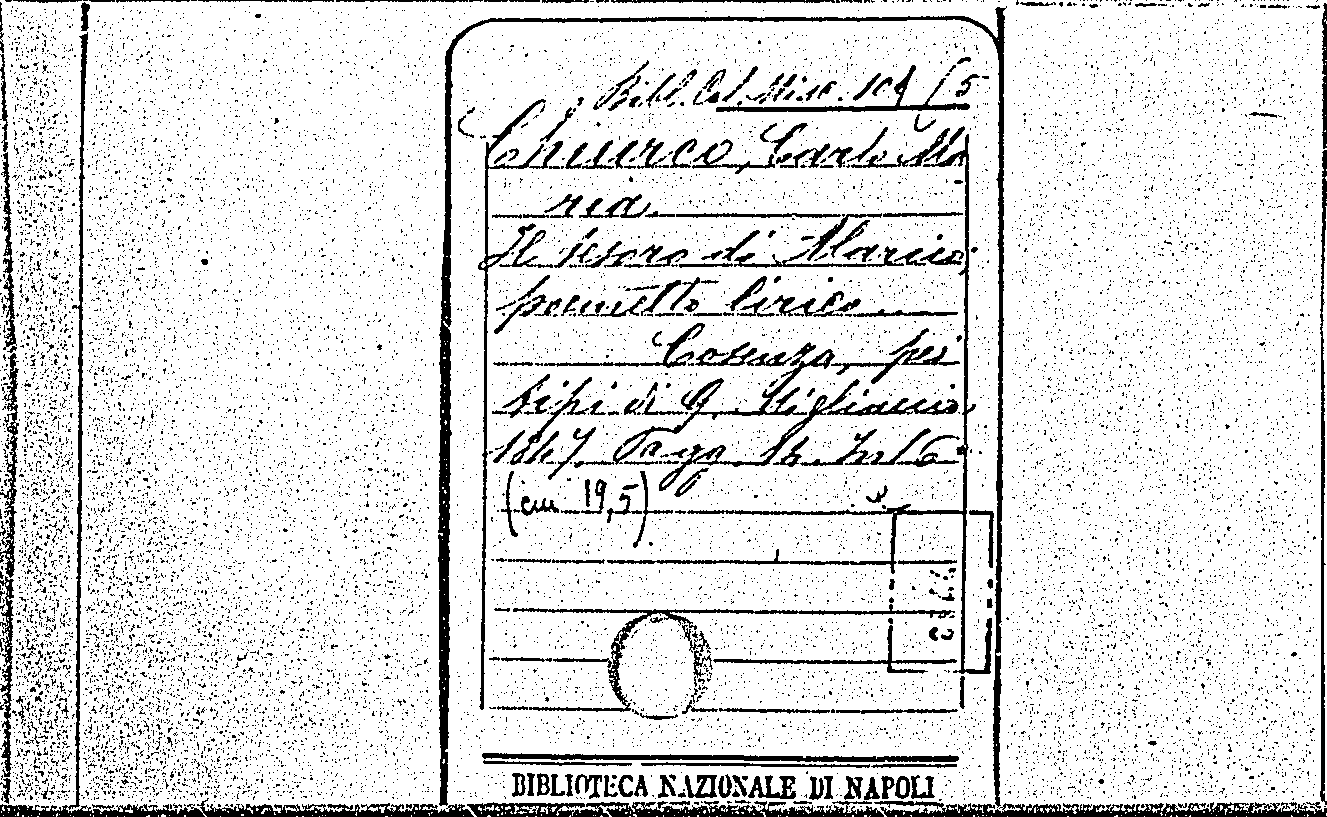 Bibl. Cal. Misc. 104 (5
Chiurco, Carlo Ma
ria.
Il tesoro di Alarico,
poemetto lirico....
Cosenza, pei
tipi di G. Migliaccio,
1847. Pagg. 14. In 16º
(cm 19,5)
BIBLIOTECA NAZIONALE DI NAPOLI